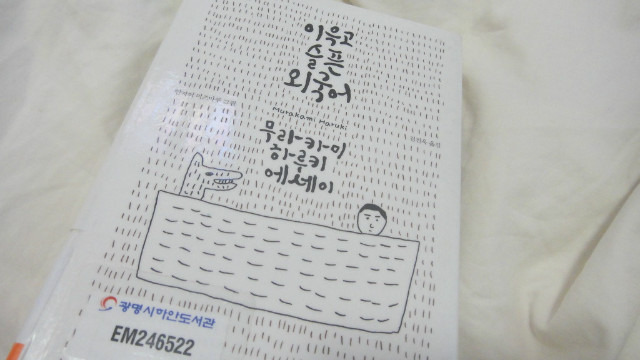 이윽고
슬픈
외국어
Murakami Haruki
무라카미
하루키
에세이
광명시하안도서관
EM246522